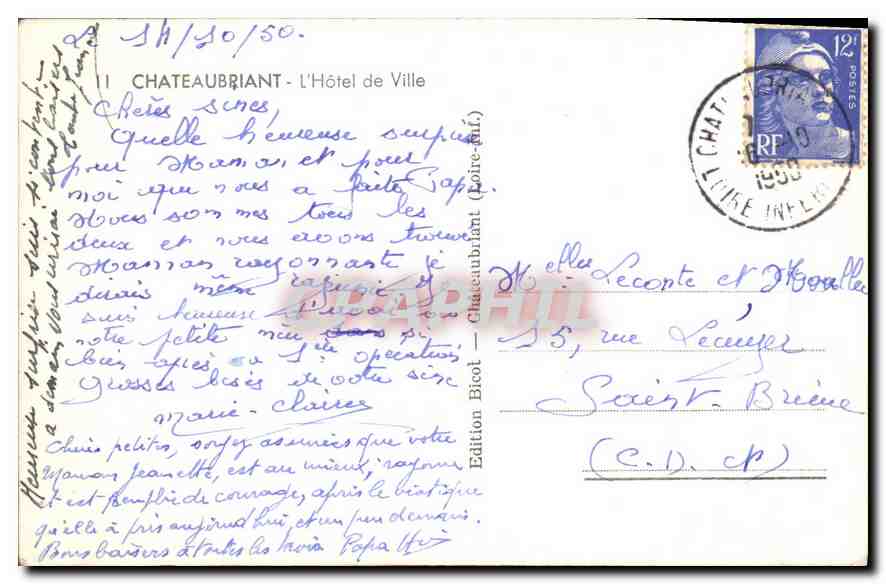 Le 14/10/50.
11 CHATEAUBRIANT - L'Hôtel de Ville
Chères Sines,
Quelle heureuse surprise
pour Maman et pour
moi que nous a faite Papa.
Nous sommes tous les
deux et nous avons trouvé
Maman rayonnante je
dirais même rajeunie. Je
suis heureuse d'avoir vu
notre petite mère si
bien après sa 1ère opération
Grosses bises de votre sine
Marie-Claire
Chères petites, soyez assurées que votre
Maman Jeanette, est au mieux, rayonne
et est remplie de courage, après le viatique
qu'elle a pris aujourd'hui, et un peu demain.
Bons baisers à toutes les trois Papa
Heureuse surprise suis si contente
a demain vous écrirai. Bons baisers
Edition Bicot — Chateaubriant (Loire-Inf.)
12F
POSTES
RF
CHATEAUBRIANT
10
1950
LOIRE INFERE
Melles Leconte et
15, rue
Saint-Brieuc
(C. D. N)
CPAPHIL